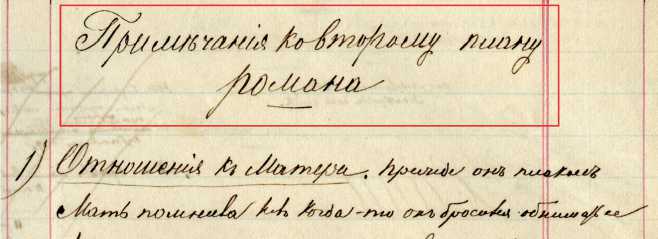 Примѣчанія ко второму плану
романа
1) Отношенія къ Матери. Прежде онъ плакалъ
Мать помнила какъ когда-то онъ бросился обнимать ее